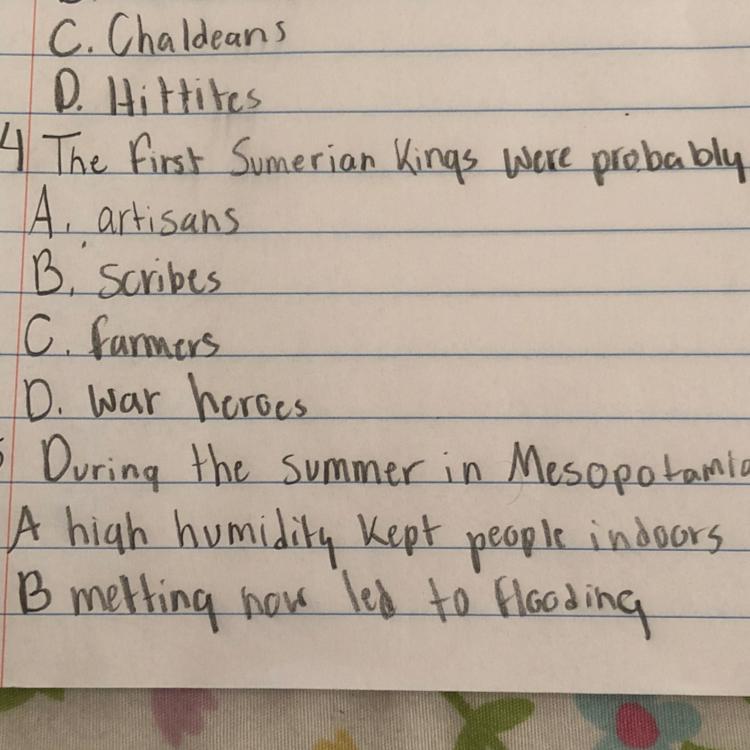 C. Chaldeans
D. Hittites
4 The first Sumerian Kings were probably
A. artisans
B. scribes
C. farmers
D. war heroes
During the summer in Mesopotamia
A high humidity kept people indoors
B melting now led to flooding